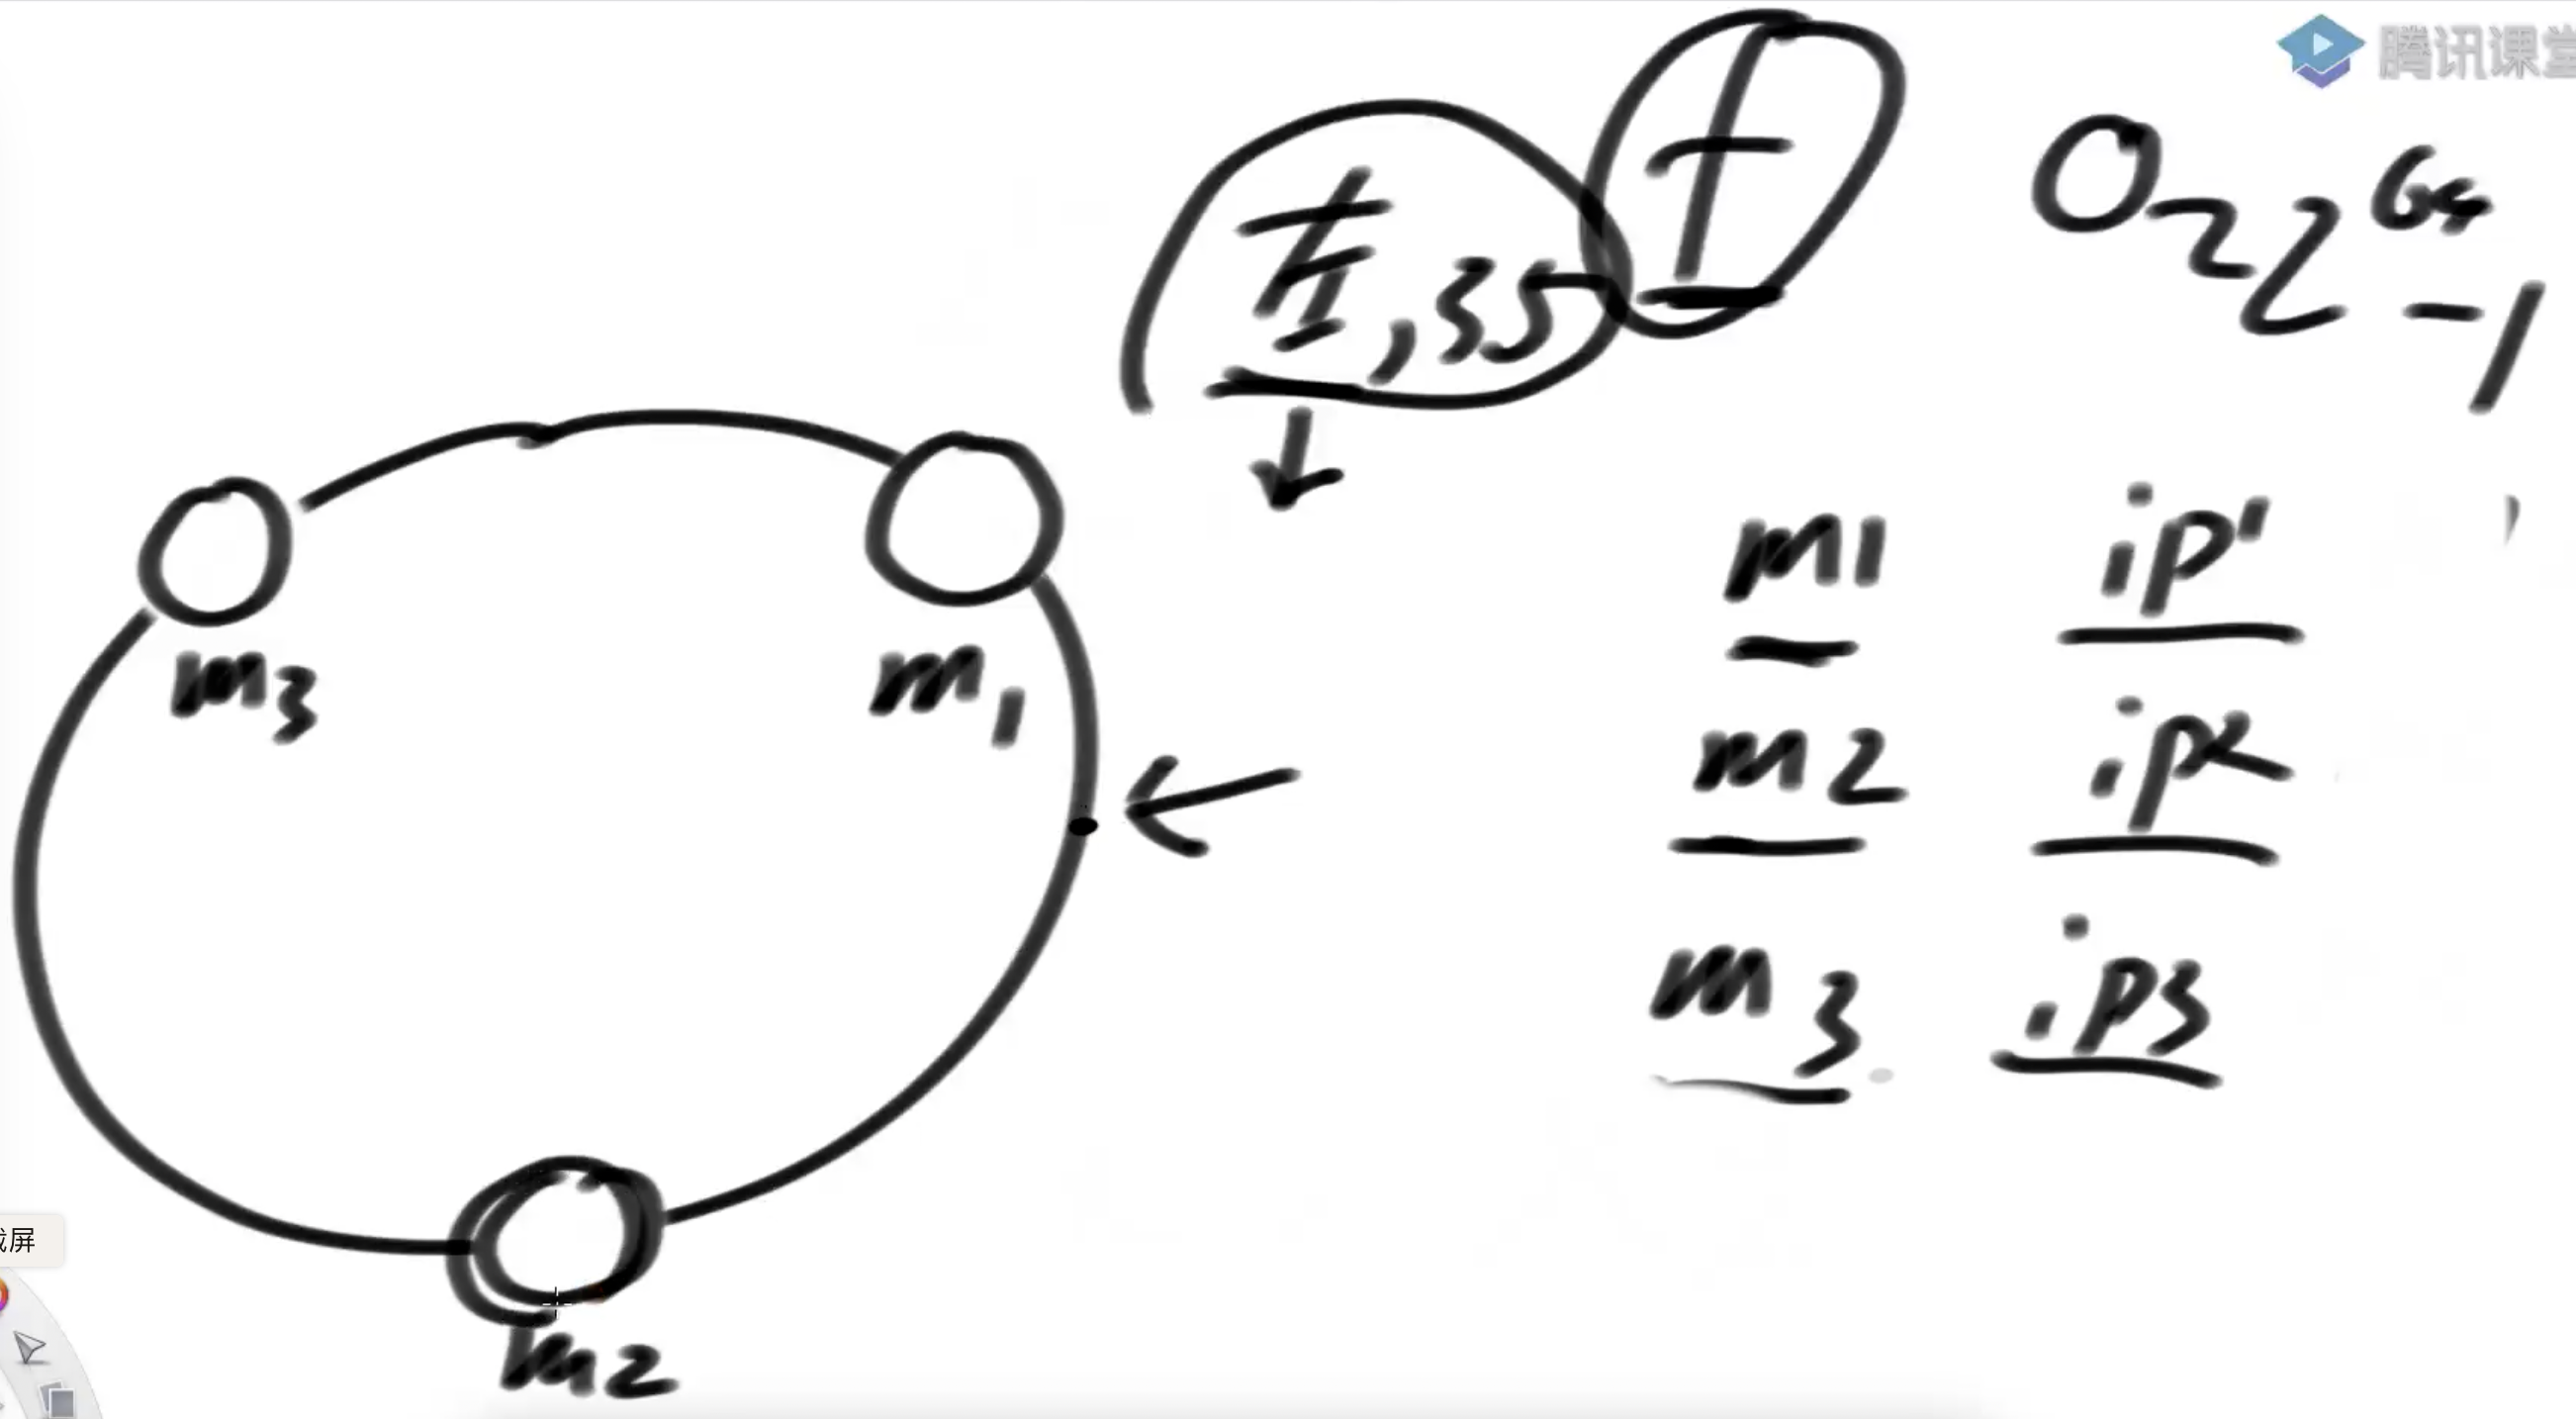 腾讯课堂
f
左,35
0~2^64-1
m1 ip1
m2 ip2
m3 ip3
m3
m1
m2
截屏